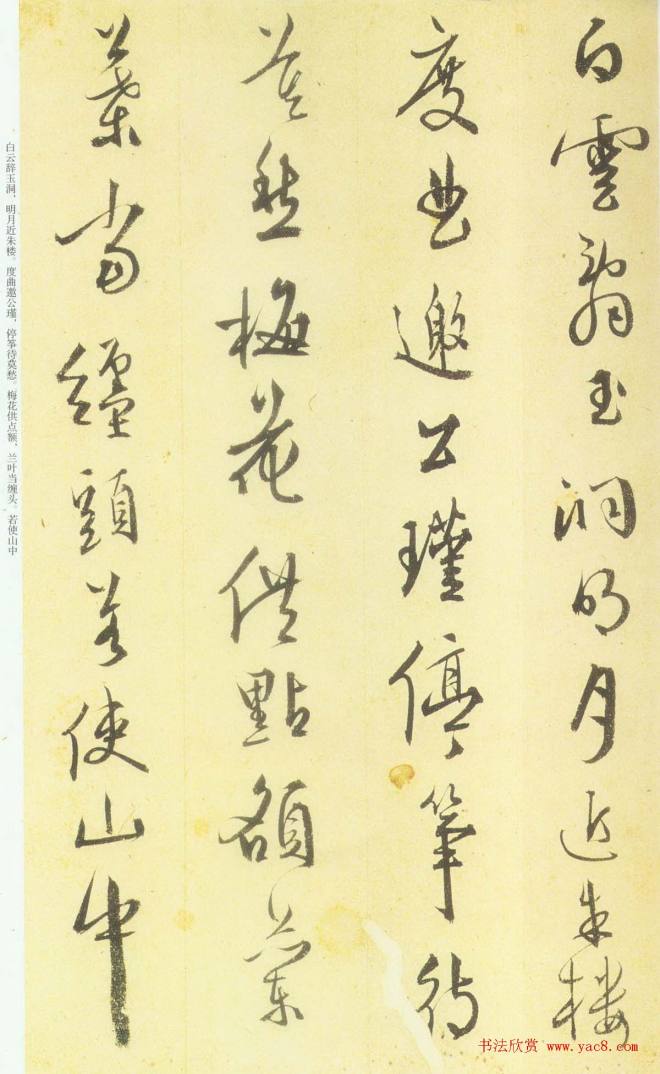 白雲辭玉洞明月近朱樓
度曲邀公瑾停箏待
莫愁梅花供點額蘭
葉當纏頭若使山中
白云辞玉洞，明月近朱楼。度曲邀公瑾，停筝待莫愁。梅花供点额，兰叶当缠头。若使山中
书法欣赏 www.yac8.com